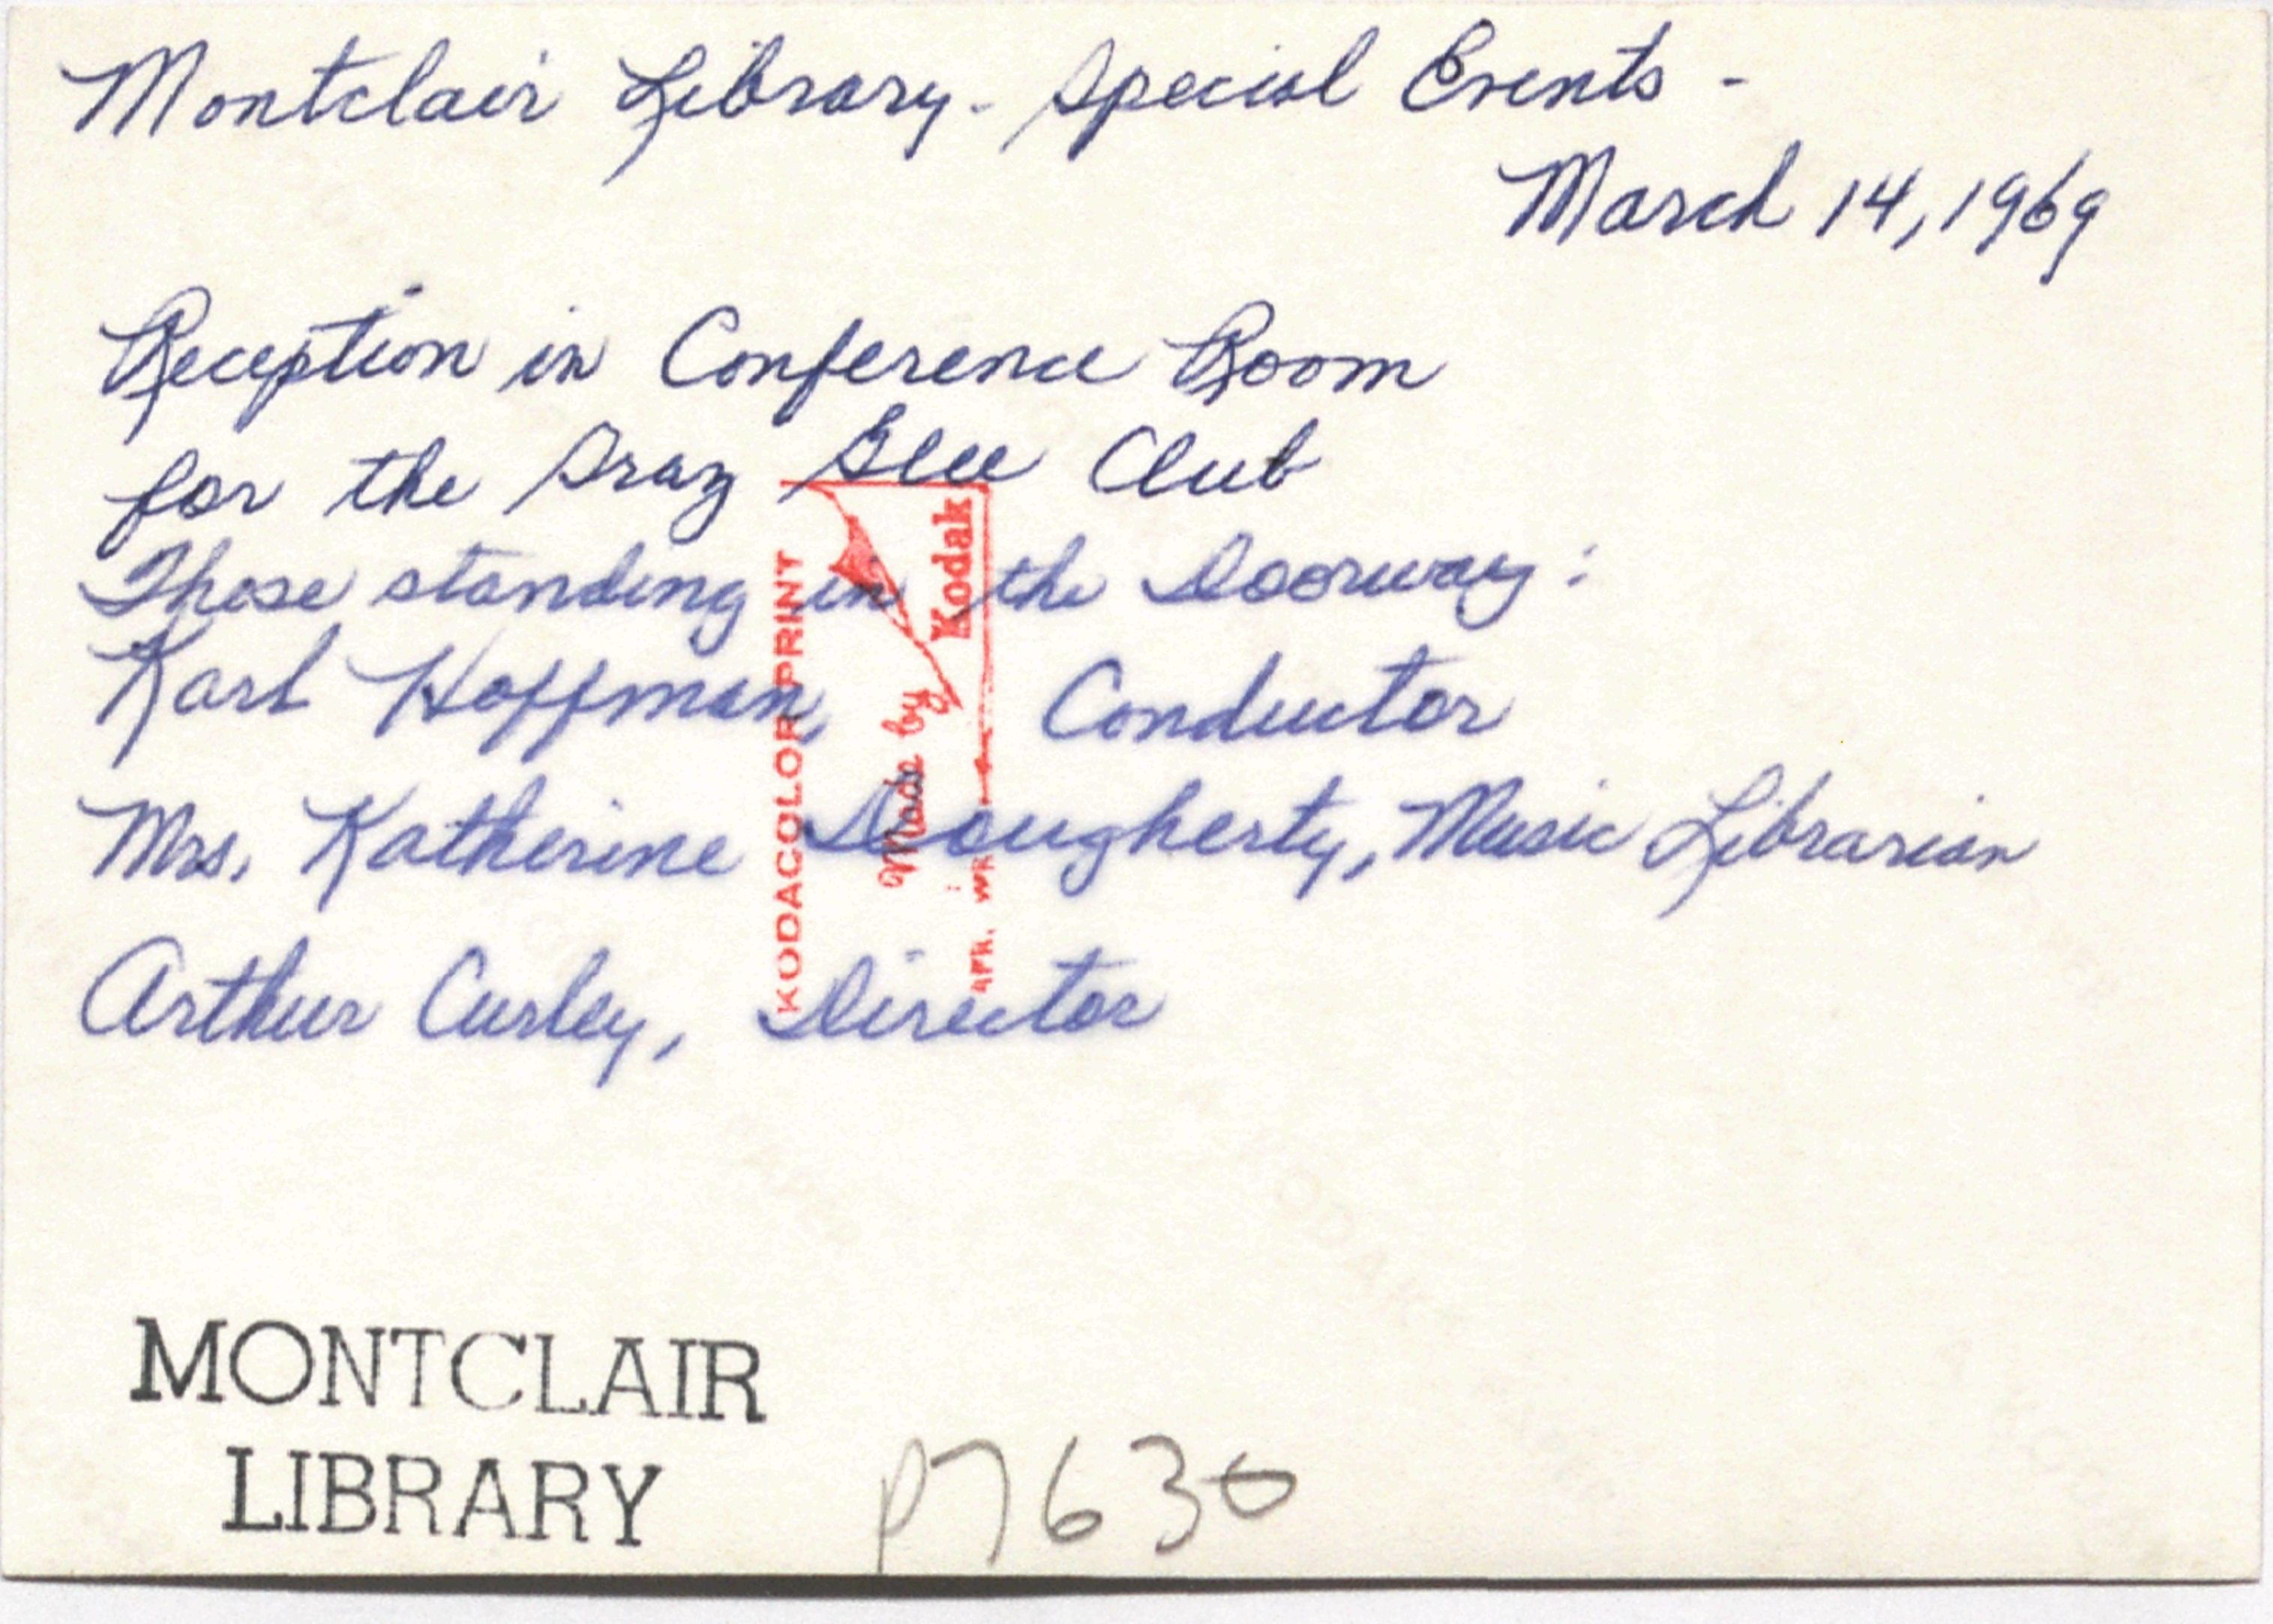 Montclair Library - Special Events -
March 14, 1969
Reception in Conference Room
for the Graz Glee Club
Those standing in the Doorway:
Karl Hoffman, Conductor
Mrs. Katherine Dougherty, Music Librarian
Arthur Curley, Director
KODACOLOR PRINT
Made by
Kodak
APR.
MONTCLAIR
LIBRARY
P7630